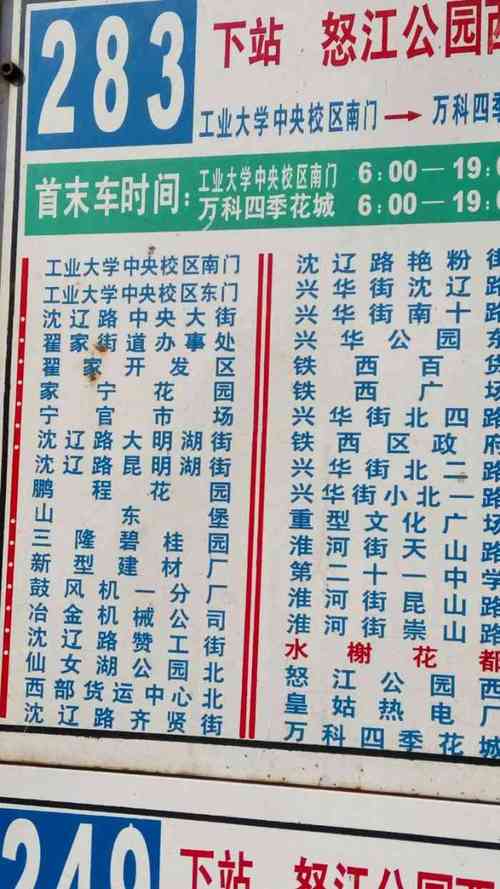 283
下站 怒江公园西
工业大学中央校区南门 → 万科四季
首末车时间:
工业大学中央校区南门 6:00—19:0
万科四季花城 6:00—19:0
工业大学中央校区南门
工业大学中央校区东门
沈辽路中央大街
翟家街道办事处
翟家开发区
家宁花园
宁官市场
沈辽路大明湖街
沈辽路昆明湖街
鹏程花园
山东堡
三隆碧桂园
新型建材厂
鼓风机一分厂
冶金机械公司
沈辽路赞工街
仙女湖公园北
西部货运中心北
沈辽路齐贤街
沈辽路艳粉街
兴华街沈辽路
兴华街南十路
兴华公园东
铁西百货
铁西广场
兴华街北四路
铁西区政府
兴华街北二路
兴华街小北一路
重型文化广场
淮河街天山路
第二十中学
淮河街昆山路
淮河街崇山路
水榭花都
怒江公园西
皇姑热电厂
万科四季花城
249
下站 怒江公园西